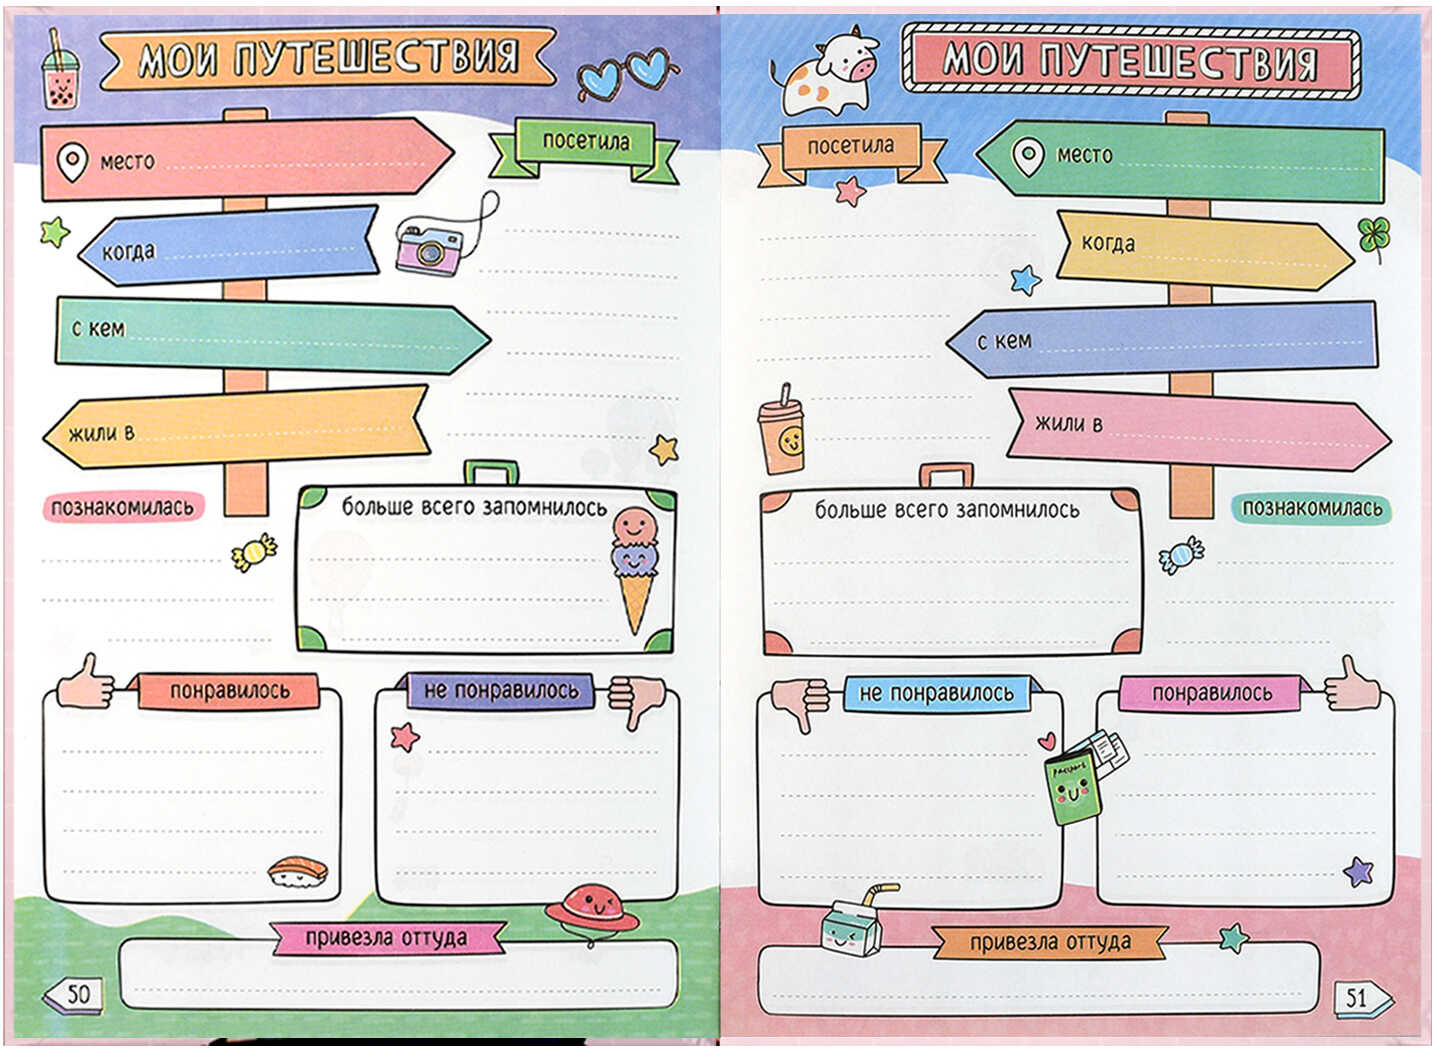 МОИ ПУТЕШЕСТВИЯ
место
посетила
когда
с кем
жили в
познакомилась
больше всего запомнилось
понравилось
не понравилось
привезла оттуда
50
МОИ ПУТЕШЕСТВИЯ
посетила
место
когда
с кем
жили в
больше всего запомнилось
познакомилась
не понравилось
понравилось
Passport
привезла оттуда
51